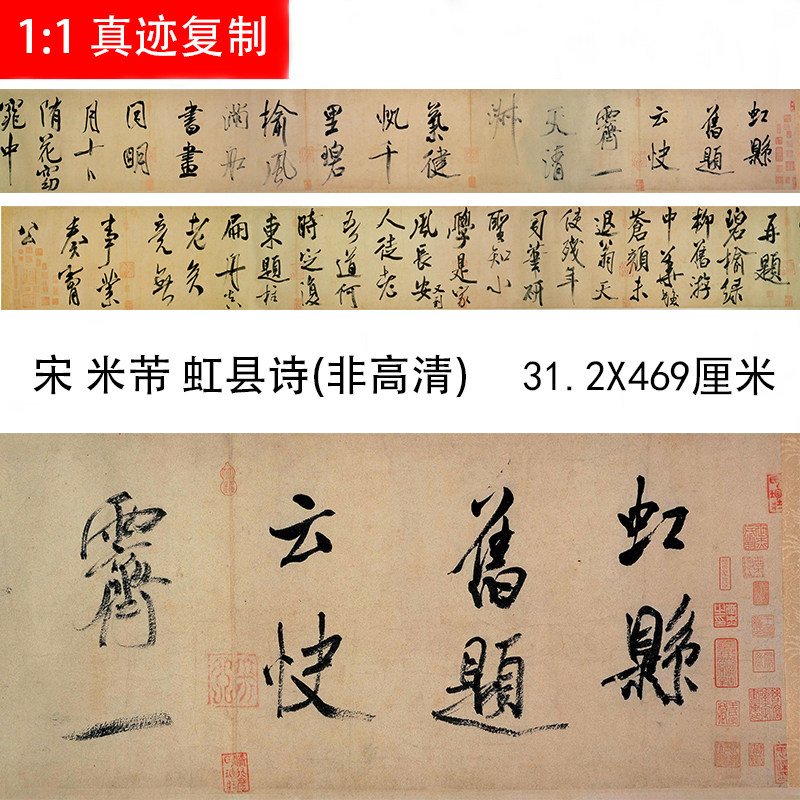 1:1 真迹复制
虹縣
舊題
云快
霽一
天清
淋
氣健
帆千
里碧
榆風
滿船
書畫
同明
月十日
隋花窈
窕中
再題
碧榆綠
柳舊游
中華髮
蒼顏未
退翁天
使殘年
司筆研
聖知小
學是家
風長安又司
人徒老
吾道何
時定復
東題柱
扁舟真
老矣
竟無
事業
奏膚
公
宋 米芾 虹县诗(非高清) 31.2X469厘米
虹縣
舊題
云快
霽一